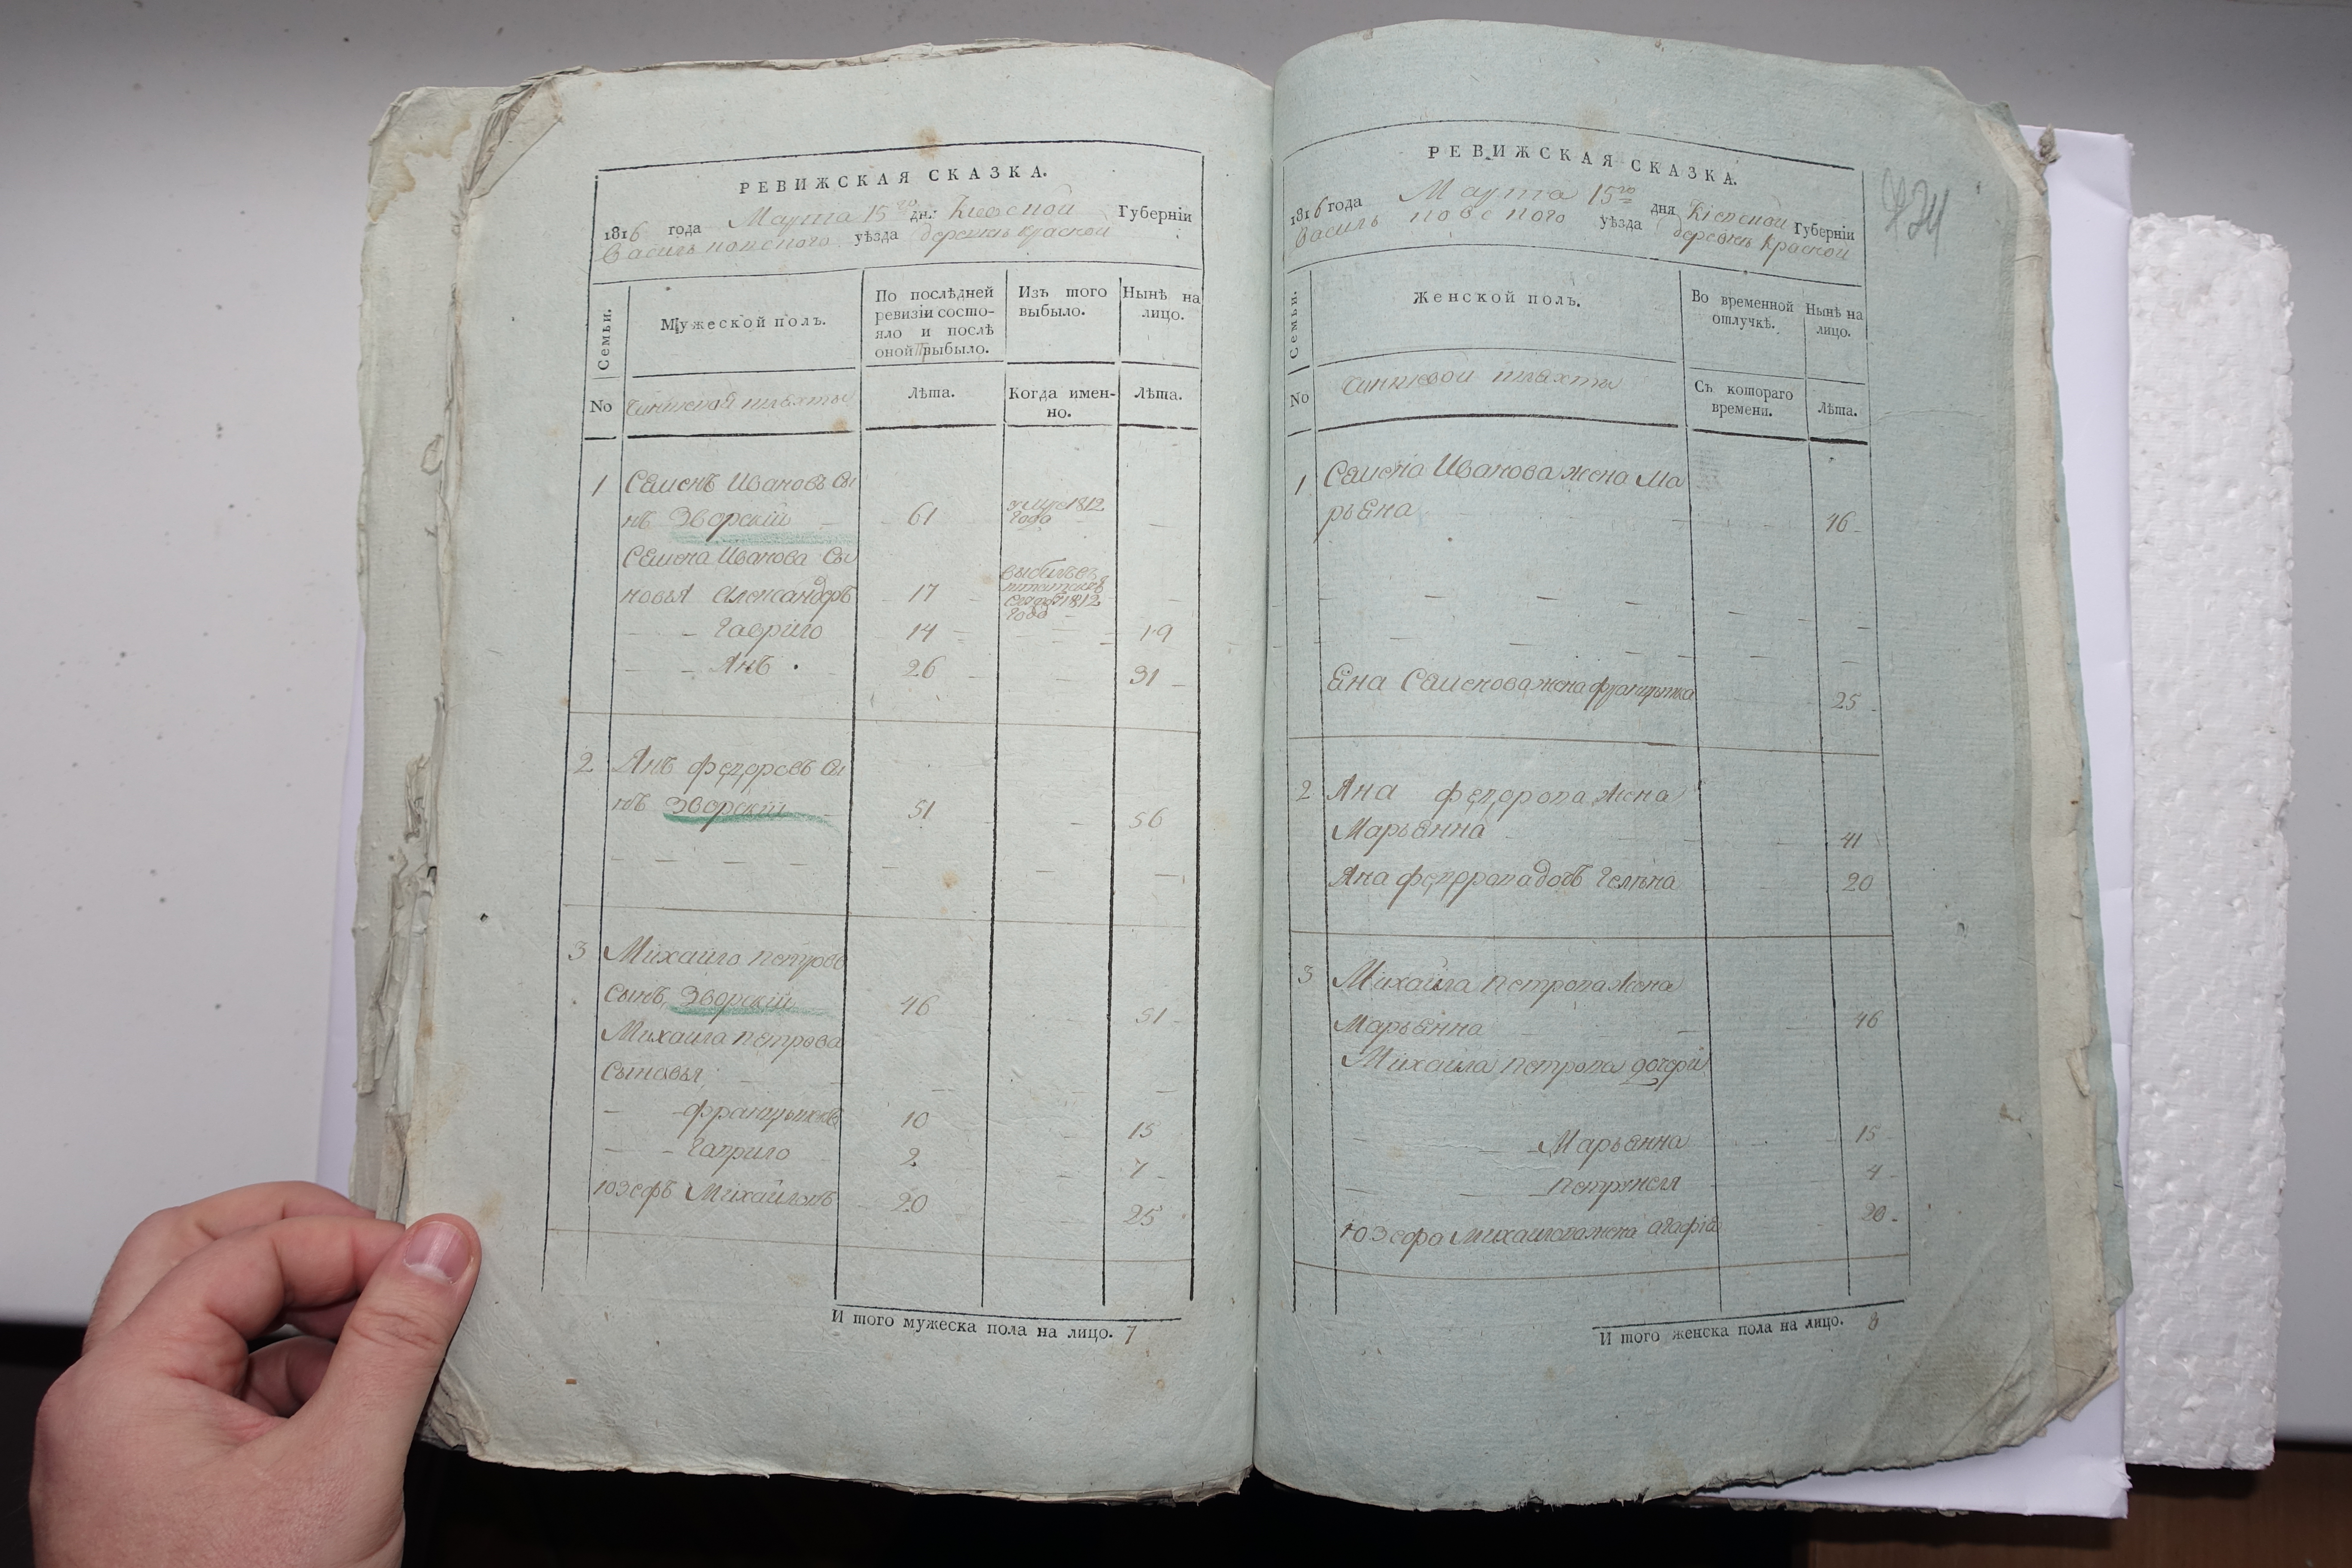 РЕВИЖСКАЯ СКАЗКА.
1816 года Марта 15го дня Киевской Губернїи
Васильковского уѣзда деревни красной
Семьи.
Мужеской полъ.
По послѣдней ревизїи состо-
яло и послѣ
оной выбыло.
Изъ того
выбыло.
Нынѣ на
лицо.
No
Чиншевой шляхты
Лѣта.
Когда имен-
но.
Лѣта.
1 Семенъ Ивановъ сы
нъ Зворскій 61 умре 1812 года
Семена Иванова сы
новья Александръ 17 1812 года
Гаврило 14 19
Янъ 26 31
2 Янъ Федоровъ сы
нъ Зворскій 51 56
3 Михайло петровъ
сынъ Зворскій 46 51
Михайла петрова
сыновья
францышекъ 10 15
Гаврило 2 7
Юзефъ Михайловъ 20 25
И того мужеска пола на лицо. 7
РЕВИЖСКАЯ СКАЗКА.
1816 года Марта 15го дня Кіевской Губернїи
Васильковского уѣзда деревни Красной
Семьи.
Женской полъ.
Во временной
отлучкѣ.
Нынѣ на
лицо.
No
Чиншевой шляхты
Съ котораго
времени.
Лѣта.
1 Семена Иванова жена Ма
рьена 46
Яна Семенова жена францишка 25
2 Яна федорова жена
Марьянна 41
Яна федорова дочь Гелена 20
3 Михайла петрова жена
Марьянна 46
Михайла петрова дочери
Марьянна 15
петрунеля 4
Юзефа Михайлова жена агафія 20
И того женска пола на лицо. 8